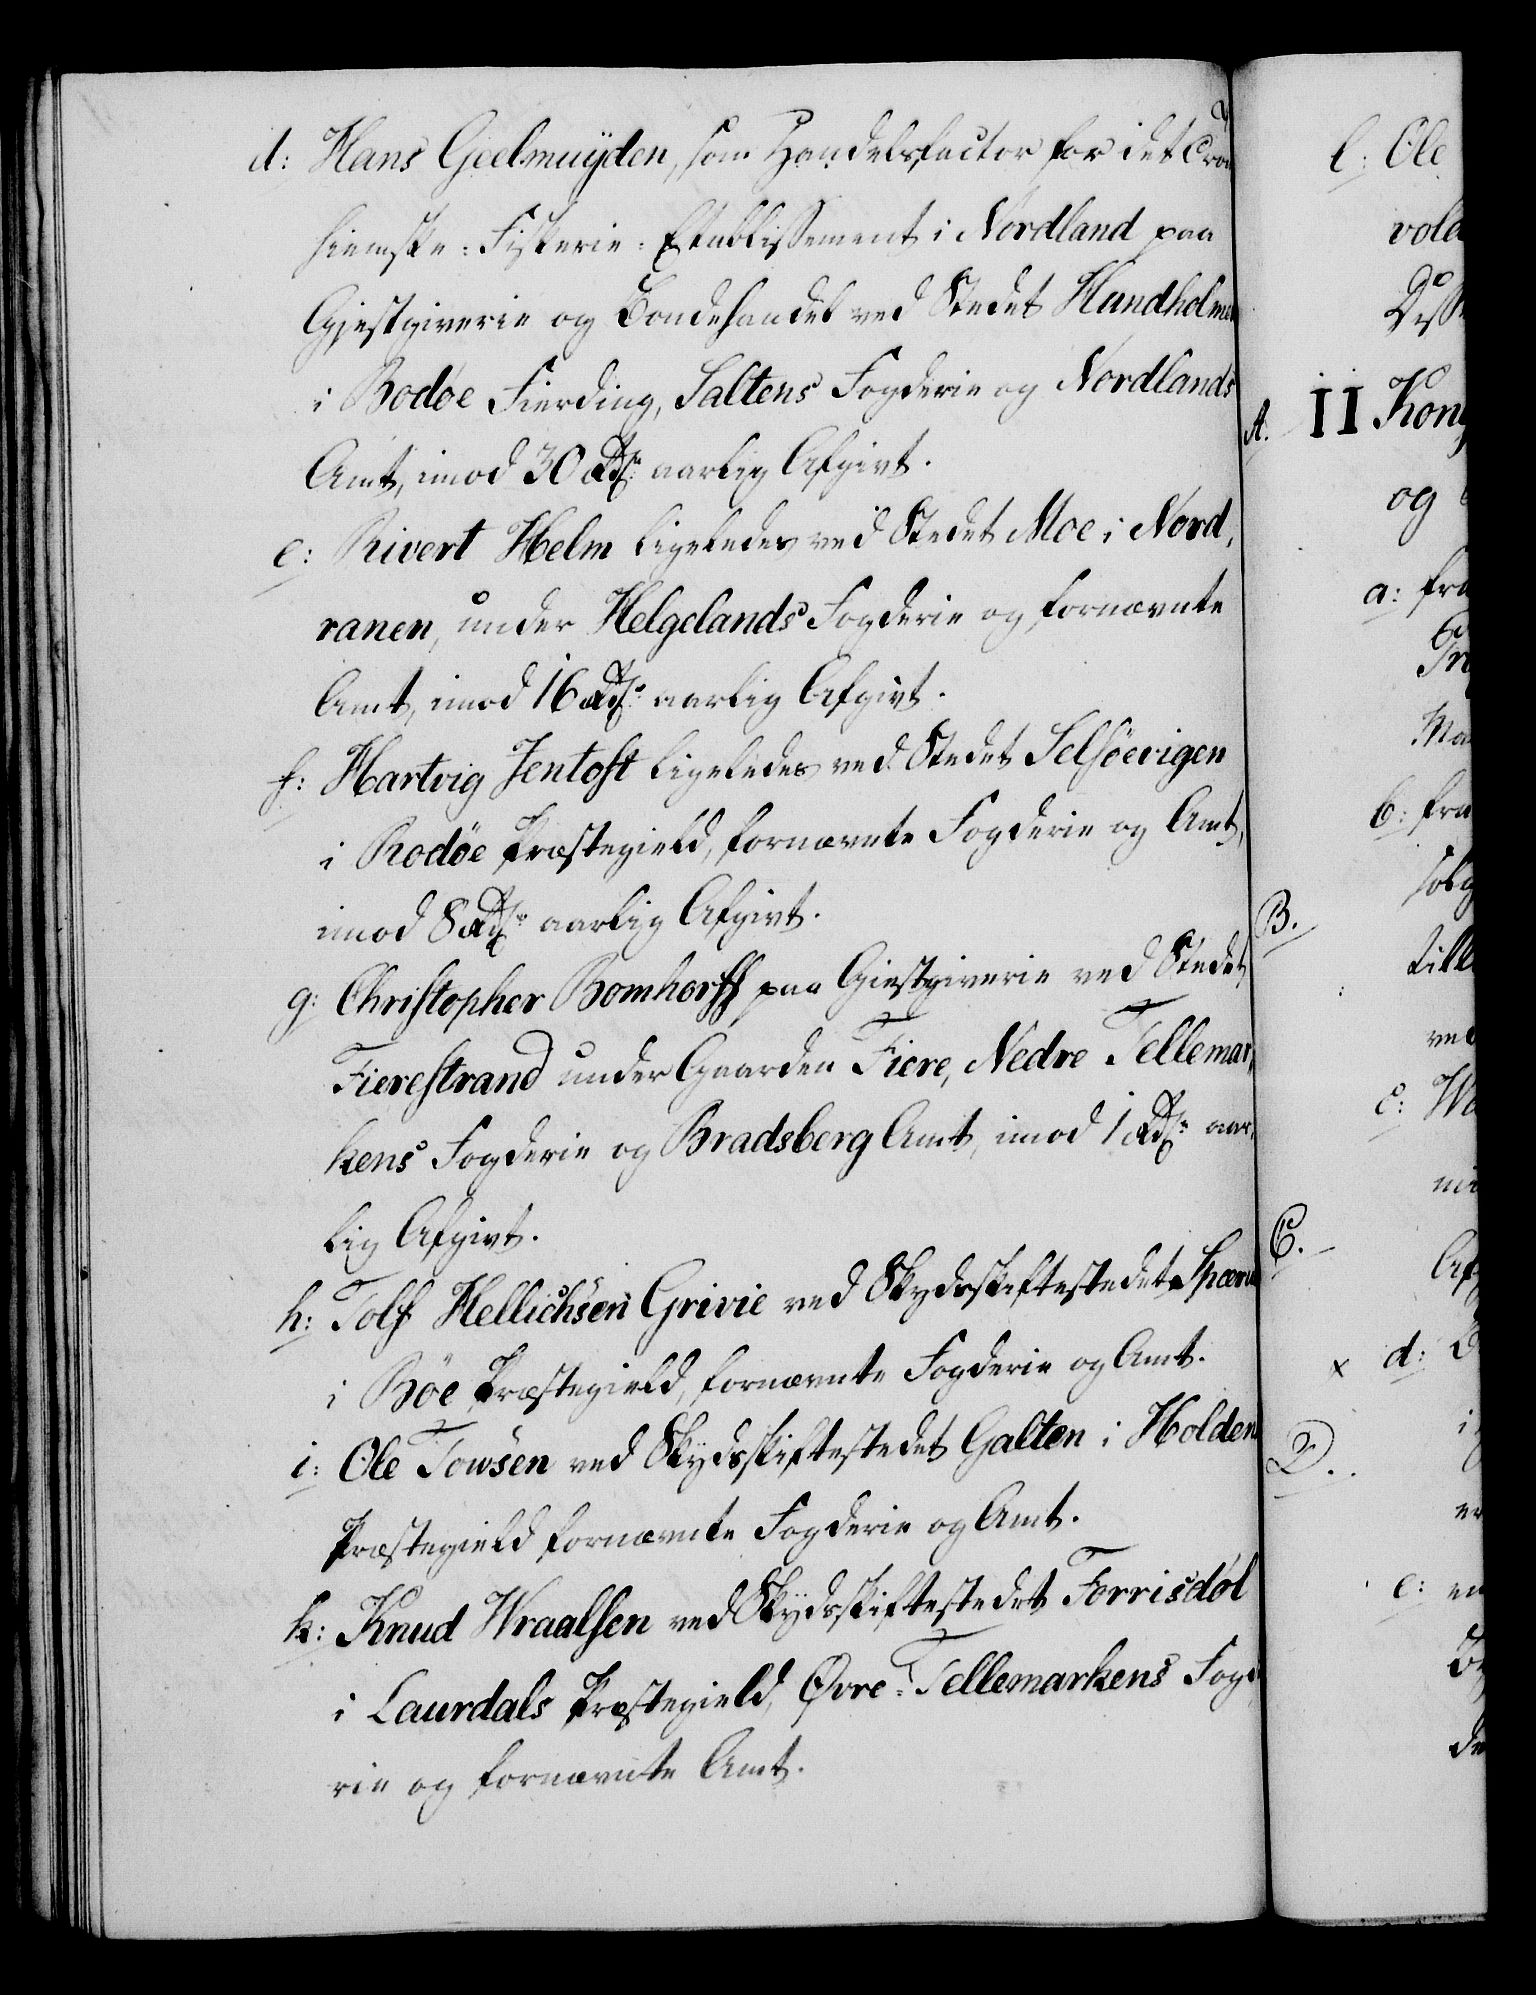 d: Hans Geelmuÿden, som Handelsfactor for det Tron
hiemske-Fiskerie-Etablissement i Nordland paa
Gjestgiverie og Bondehandel ved Stedet Hundholmen
i Bodøe Fierding, Saltens Fogderie og Nordlands
Amt, imod 30 Rdr. aarlig Afgivt.
e: Rivert Helm ligeledes ved Stedet Moe i Nord,
ranen, under Helgelands Fogderie og fornævnte
Amt, imod 16 Rdr. aarlig Afgivt.
f: Hartvig Jentoft ligeledes ved Stedet Selsöevigen
i Rodöe Præstegield, fornævnte Fogderie og Amt,
imod 8 Rdr. aarlig Afgivt.
g: Christopher Bomhorff paa Giestgiverie ved Stedet
Fierestrand under Gaarden Fiere, Nedre Tellemar,
kens Fogderie og Bradsberg Amt, imod 1 Rdr. aar,
lig Afgivt.
h: Tolf Hellichsen Grivie ved Skydsskiftestedet
i Böe Præstegield, fornævnte Fogderie og Amt.
i: Ole Towsen ved Skydsskiftestedet Galten i Holdens
Præstegield fornævnte Fogderie og Amt.
k: Knud Wraalsen ved Skydsskiftestedet Forrisdøl
i Laurdals Præstegield, Øvre-Tellemarkens Fogde
rie og fornævnte Amt.
l: Ole
A. II Kong
og
a: fra
b: fra
B.
c:
C.
x d:
D.
e: